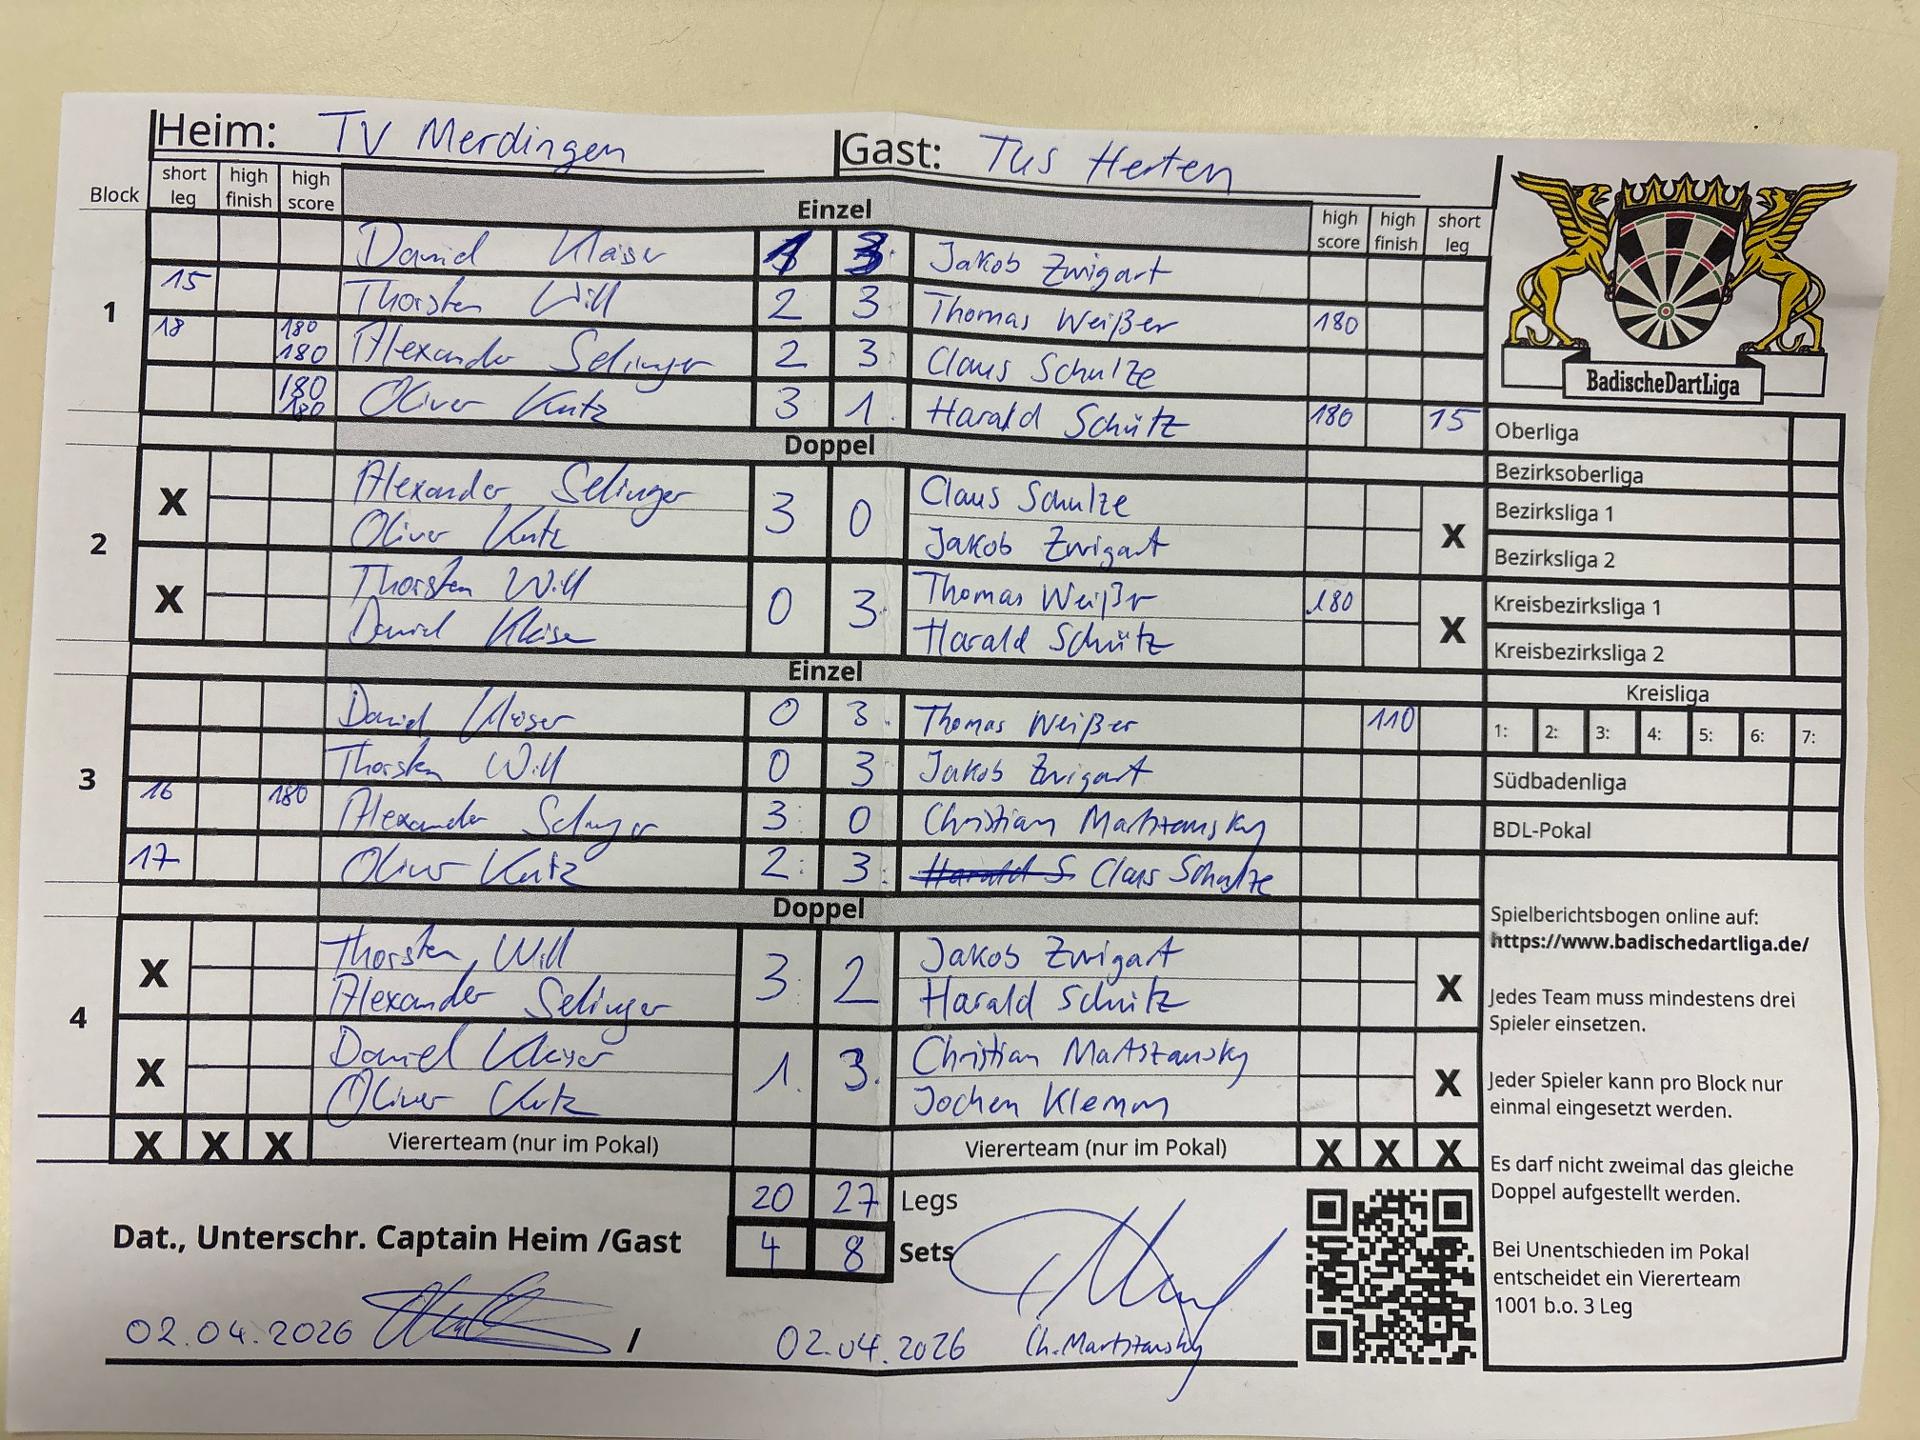 Heim: TV Merdingen Gast: TuS Herten
Block short leg high finish high score Einzel high score high finish short leg
1
Daniel Kläiser 1 3 Jakob Zwigart
15 Thorsten Will 2 3 Thomas Weißer 180
18 180 180 Alexander Selinger 2 3 Claus Schulze
180 180 Oliver Kutz 3 1 Harald Schütz 180 15
Doppel
2
X Alexander Selinger 3 0 Claus Schulze X
Oliver Kutz Jakob Zwigart
X Thorsten Will 0 3 Thomas Weißer 180 X
Daniel Kläiser Harald Schütz
Einzel
3
Daniel Kläiser 0 3 Thomas Weißer 110
Thorsten Will 0 3 Jakob Zwigart
16 180 Alexander Selinger 3: 0 Christian Martszansky
17 Oliver Kutz 2: 3: Harald S Claus Schulze
Doppel
4
X Thorsten Will 3: 2 Jakob Zwigart X
Alexander Selinger Harald Schütz
X Daniel Kläiser 1. 3. Christian Martszansky X
Oliver Kutz Jochen Klemm
X X X Viererteam (nur im Pokal) Viererteam (nur im Pokal) X X X
20 27 Legs
4 8 Sets
Dat., Unterschr. Captain Heim /Gast
02.04.2026 / 02.04.2026 Ch. Martszansky
BadischeDartLiga
Oberliga
Bezirksoberliga
Bezirksliga 1
Bezirksliga 2
Kreisbezirksliga 1
Kreisbezirksliga 2
Kreisliga
1: 2: 3: 4: 5: 6: 7:
Südbadenliga
BDL-Pokal
Spielberichtsbogen online auf:
https://www.badischedartliga.de/
Jedes Team muss mindestens drei
Spieler einsetzen.
Jeder Spieler kann pro Block nur
einmal eingesetzt werden.
Es darf nicht zweimal das gleiche
Doppel aufgestellt werden.
Bei Unentschieden im Pokal
entscheidet ein Viererteam
1001 b.o. 3 Leg